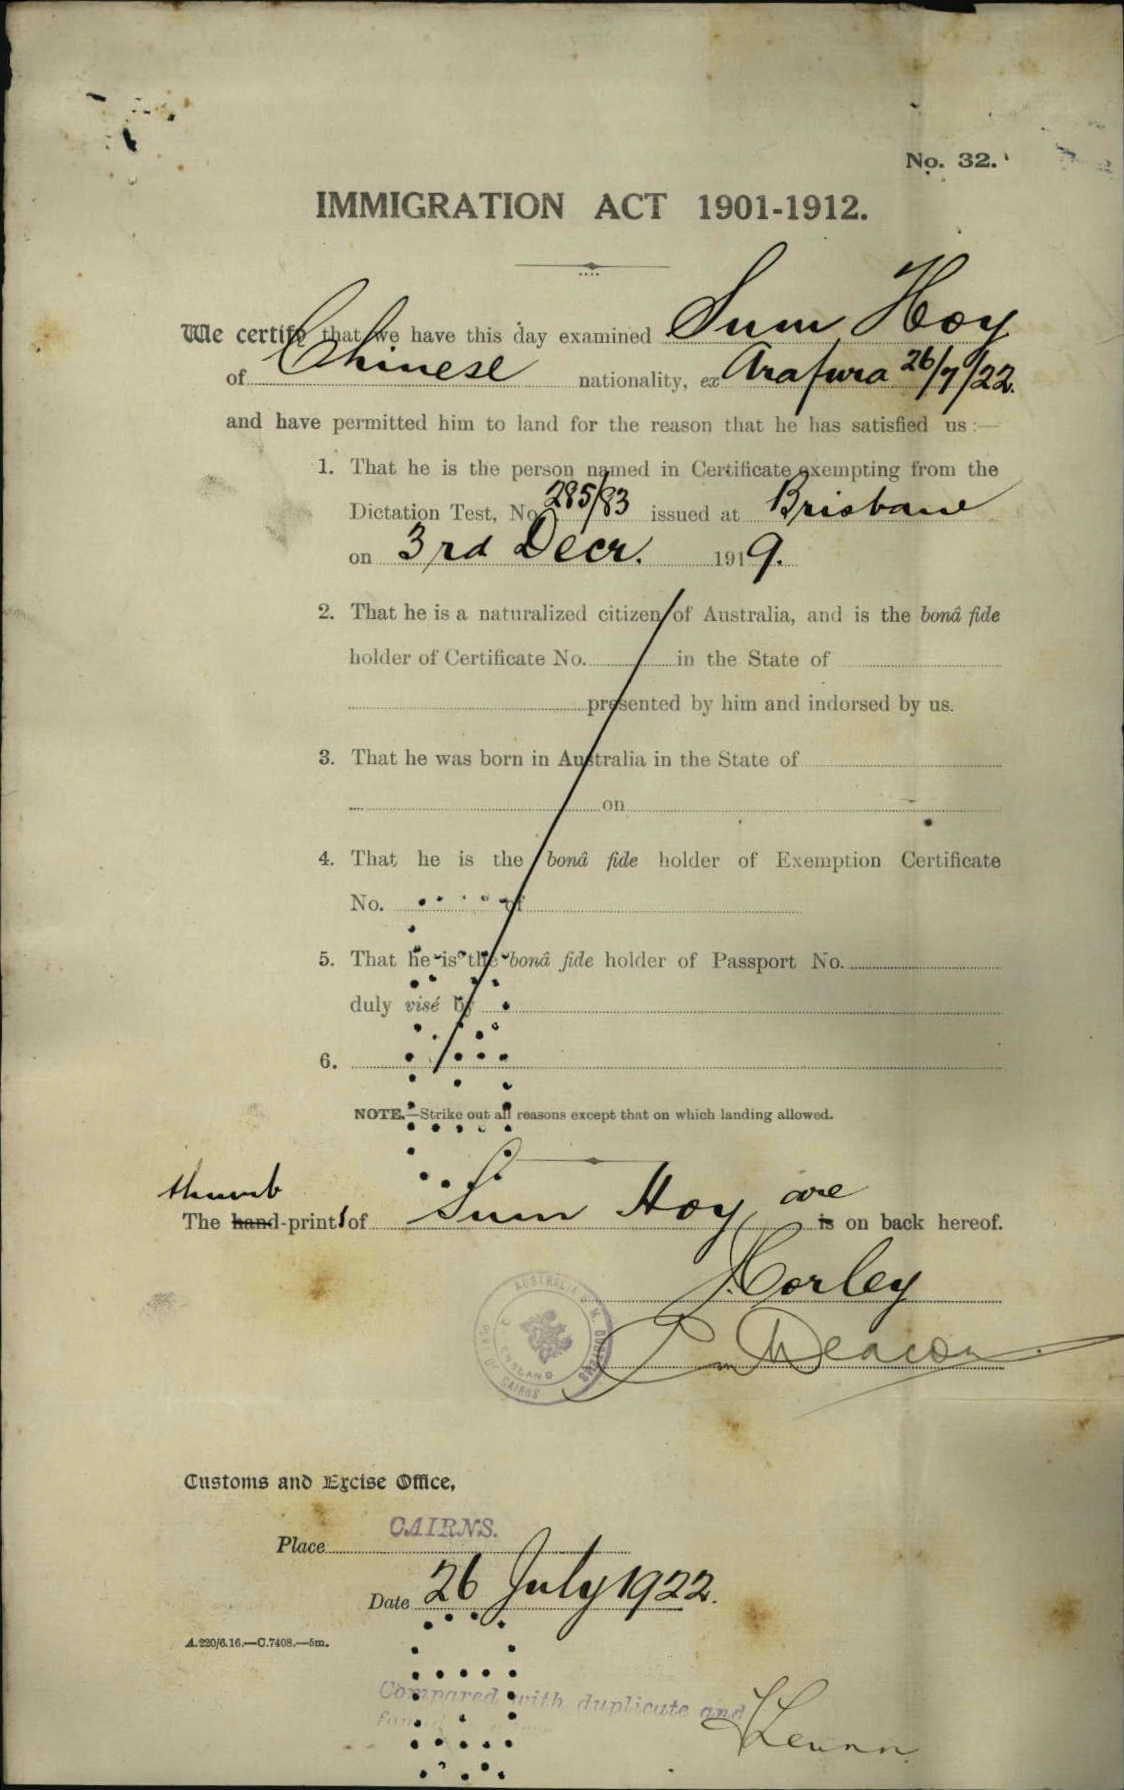 No. 32.
IMMIGRATION ACT 1901-1912.
We certify that we have this day examined Sum Hoy
of Chinese nationality, ex Arafura 26/7/22.
and have permitted him to land for the reason that he has satisfied us :—
1. That he is the person named in Certificate exempting from the
Dictation Test, No 285/83 issued at Brisbane
on 3rd Decr. 1919.
2. That he is a naturalized citizen of Australia, and is the bonâ fide
holder of Certificate No. in the State of
presented by him and indorsed by us.
3. That he was born in Australia in the State of
on
4. That he is the bonâ fide holder of Exemption Certificate
No. of
5. That he is the bonâ fide holder of Passport No.
duly visé by
6.
NOTE.—Strike out all reasons except that on which landing allowed.
thumb
The hand-prints of Sum Hoy are
is on back hereof.
J. Corley
Deacon
AUSTRALIA H.M. CUSTOMS
CAIRNS
Customs and Excise Office,
Place CAIRNS.
Date 26 July 1922.
A.220/6.16.—C.7408.—5m.
Compared with duplicate and